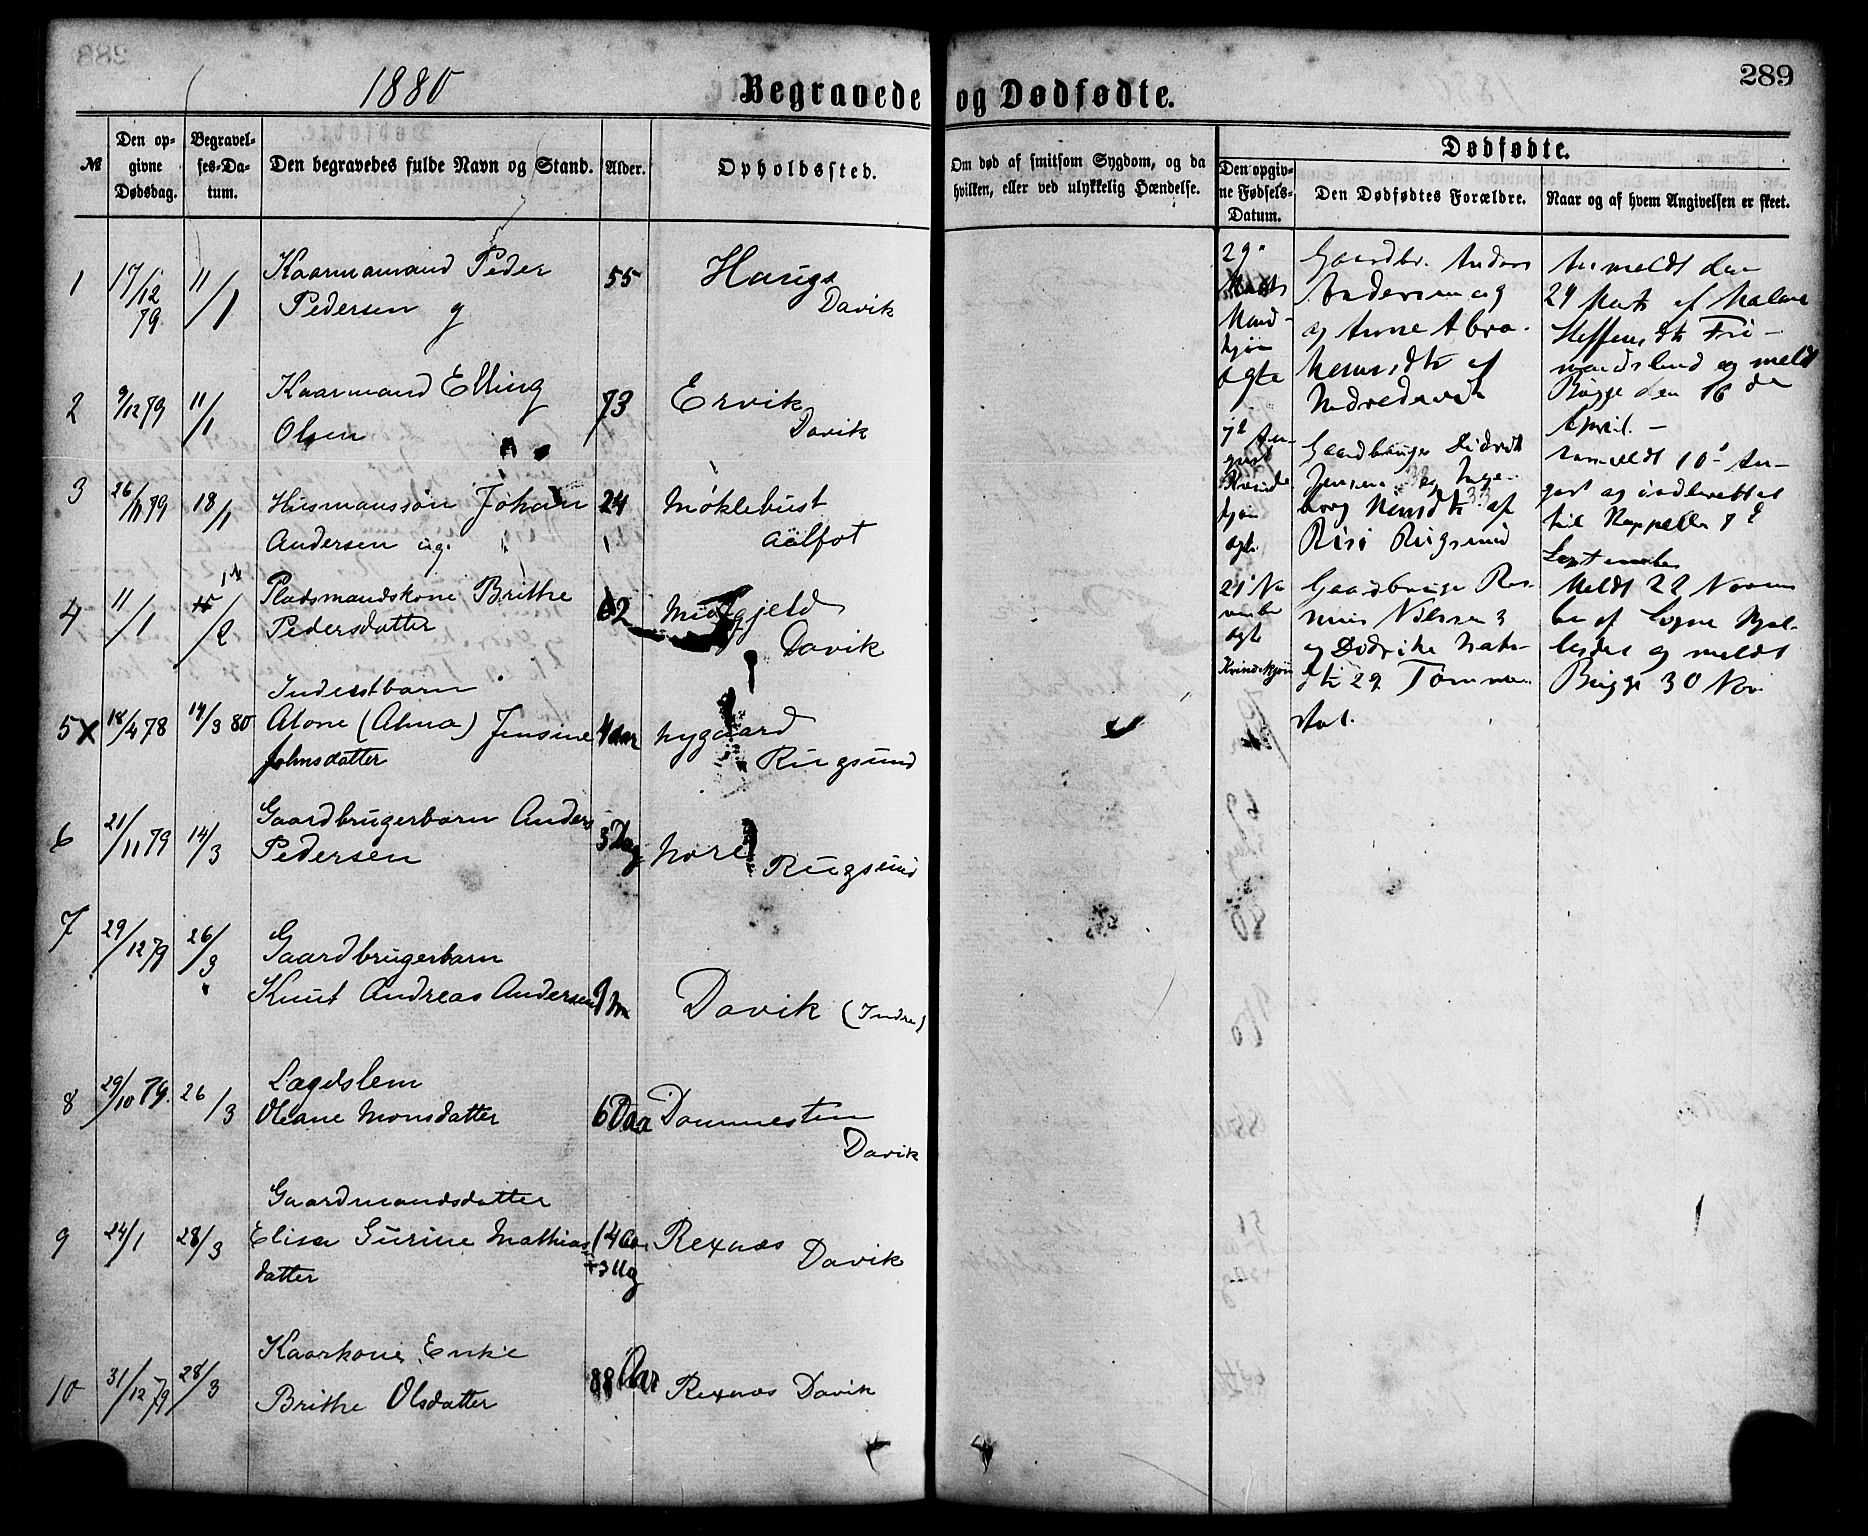 289
1880
Begravede og Dødfødte.
№
Den opgivne Dødsdag.
Begravelses-Datum.
Den begravedes fulde Navn og Stand.
Alder.
Opholdssted.
Om død af smitsom Sygdom, og da hvilken, eller ved ulykkelig Hændelse.
Dødfødte.
Den opgivne Fødsels-Datum.
Den Dødfødtes Forældre.
Naar og af hvem Angivelsen er skeet.
1 17/12 79 11/1 Kaarmamand Peder 55 Hauge
Pedersen g Davik
2 9/12 79 11/1 Kaarmand Elling 73 Ervik
Olsen Davik
3 26/11 79 18/1 Husmanssøn Johan 24 Møklebust
Andersen ug. Aalfot
4 11/1 15/2 Pladsmandskone Brithe 62 Midtgjeld
Pedersdatter Davik
Inderstbarn
5 x 18/4 78 14/3 80 Alone (Alma) Jensine Nygaard
Johnsdatter Rugsund
6 21/11 79 14/3 Gaardbrugerbarn Anders 3 Dag Nore
Pedersen Rugsund
7 29/12 79 26/3 Gaardbrugerbarn
Knut Andreas Andersen Davik (Indre)
8 29/10 79. 26/3 Lægdslem
Oleane Monsdatter Dommesten
Davik
Gaardmandsdatter
9 24/1 28/3 Elisa Gurine Mathias 14 Rexnæs Davik
datter
Kaarkone, Enke
10 31/12 79 28/3 Brithe Olsdatter 88 Aar Rexnæs Davik
29
Marts
Mand-
kjøn
ægte
Gaardbr. Anders
Andersen og
og Anne Abra-
hamsdtr af
Anmeldt den
29 Marts af Malene
Steffensdtr Fri-
mandslund og meldt
Bugge den 16 de
April. -
August
Kvinde
kjøn
ægte
Gaardbruger Didrik
Jensen og Inge-
borg af
Risi Rugsund
anmeldt 10 Au-
gust og indberettet
til Kappellan
September
21 No
vember
ægte
Kvindekjøn
Gaardbruger Ras-
mus Nilsen
og Didrike
29
Meldt 22 Novem
ber af
og meldt
Bugge 30 Nov